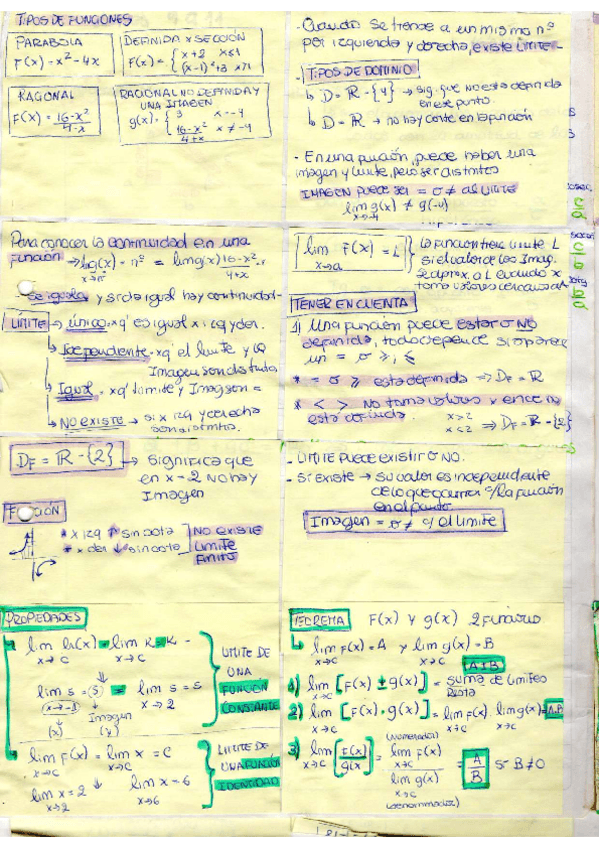 TIPOS DE FUNCIONES
PARABOLA
F(x) = x² - 4x
DEFINIDA X SECCIÓN
F(x) = { x+2 x≤1
(x-1)²+3 x>1
RACIONAL
F(x) = 16-x²
4-x
RACIONAL NO DEFINIDA Y
UNA IMAGEN
g(x) = { 3 x=-4
16-x² x≠-4
4+x
- Cuando se tiende a un mismo nº
por izquierda y derecha, existe LIMITE
- TIPOS DE DOMINIO
↳ D = ℝ - {4} → sig. que no esta definida
en ese punto.
↳ D = ℝ → no hay corte en la función
- En una función, puede haber una
imagen y limite, pero ser distintos
IMAGEN PUEDE SER = o ≠ al LIMITE
lim g(x) ≠ g(-4)
x→-4
Para conocer la continuidad en una
función → lim g(x) = nº = lim g(x) 16-x²
4+x
Se iguala y si da igual hay continuidad
LÍMITE → único xq' es igual x izq y der.
↳ Independiente xq' el limite y la
Imagen son distintos
↳ Igual xq' limite y Imagen =
↳ NO EXISTE → si x izq y derecha
son distintos.
lim F(x) = L
x→a
La función tiene limite L
si el valor de las Imag.
se aprox. a L cuando x
toma valores cercanos a
TENER EN CUENTA
1) Una función puede estar o NO
definida, todo depende si aparece
un = o ≥, ≤
* = o ≥ esta definida ⇒ DF = ℝ
* < > No toma valores x ende no
esta definida. x>2
x<2 ⇒ DF = ℝ - {2}
DF = ℝ - {2} → significa que
en x = 2 no hay
Imagen
* x izq ↑ sin cota
* x der ↓ sin cota
NO EXISTE
LIMITE
FINITO
- LIMITE PUEDE EXISTIR O NO.
- SI EXISTE → su valor es independiente
de lo que ocurra c/ la función
en el punto.
Imagen = o ≠ c/ el limite
PROPIEDADES
lim h(x) = lim K = K
x→c x→c
lim 5 = 5 = lim 5 = 5
x→-3 x→2
Imagen
(x) (y)
LIMITE DE
UNA
FUNCIÓN
CONSTANTE
lim F(x) = lim x = c
x→c x→c
lim x = 2 lim x = 6
x→2 x→6
LIMITE DE
UNA FUNCIÓN
IDENTIDAD
TEOREMA F(x) y g(x) 2 Funciones
↳ lim F(x) = A y lim g(x) = B
x→c x→c
A±B
1) lim [F(x) ± g(x)] = suma de limites
x→c resta
2) lim [F(x) · g(x)] = lim F(x) · lim g(x) = A.B
x→c x→c x→c
(numerador)
3) lim [F(x)/g(x)] = lim F(x) / lim g(x) = A/B si B≠0
x→c x→c x→c
(denominador)